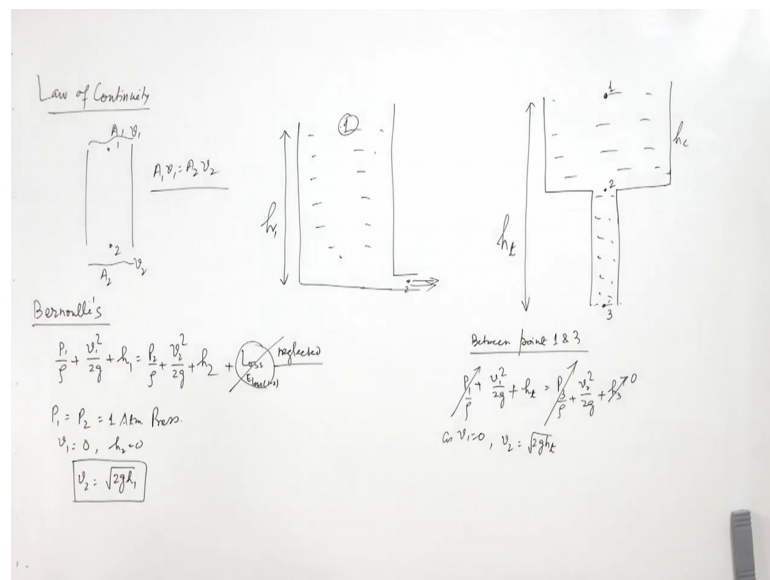 Law of Continuity
A₁ v₁
1
A₁v₁ = A₂v₂
2
A₂ v₂
Bernoulli's
P₁/ρ + v₁²/2g + h₁ = P₂/ρ + v₂²/2g + h₂ + Loss neglected
P₁ = P₂ = 1 Atm Press.
v₁ = 0, h₂ = 0
v₂ = √2gh₁
1
h₁
2
1
hc
2
ht
3
Between point 1 & 3
P₁/ρ + v₁²/2g + ht = P₃/ρ + v₂²/2g + h₃ 0
as v₁ = 0, v₂ = √2ght